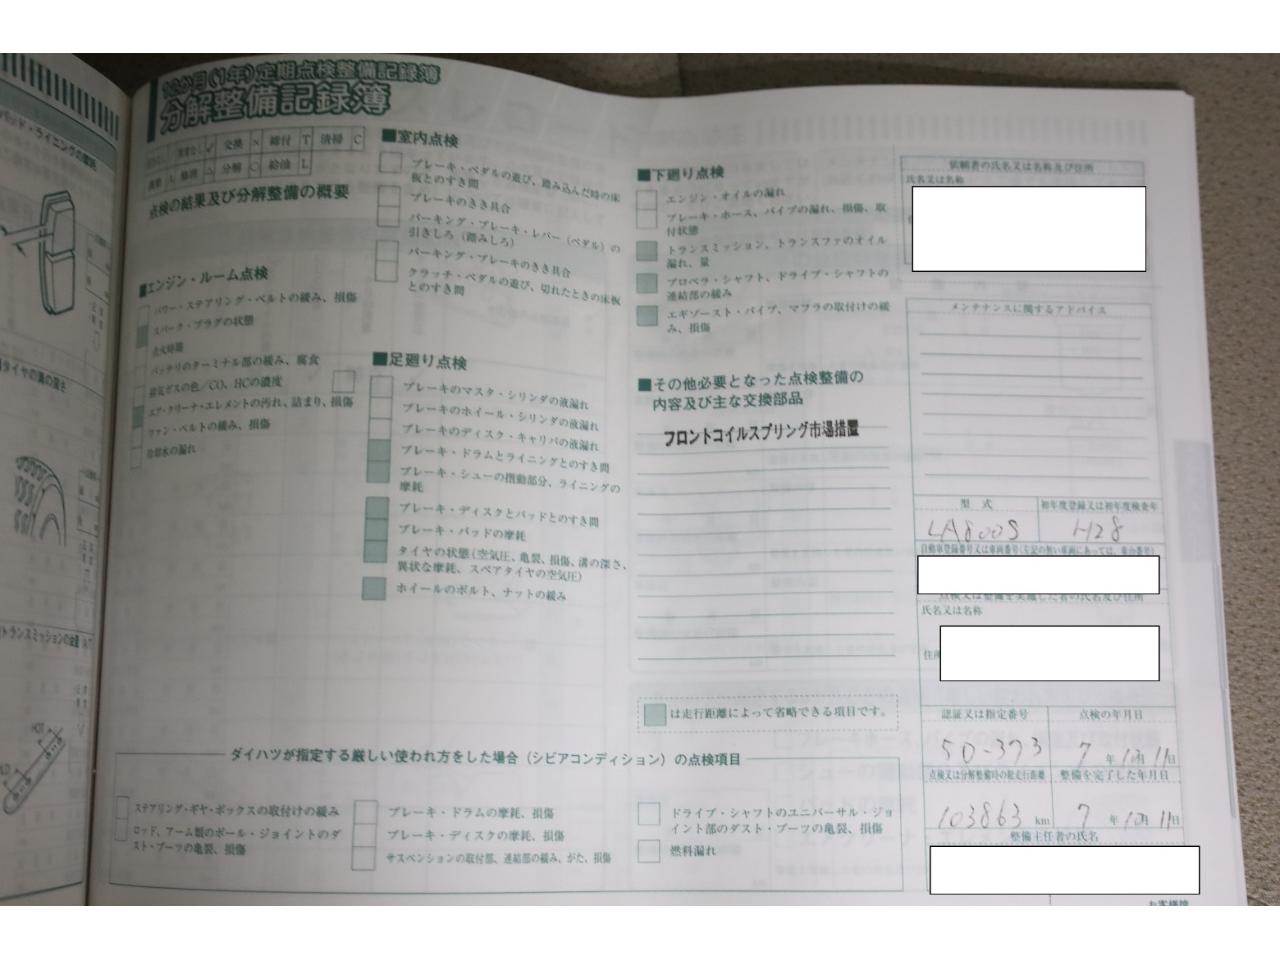 12か月(1年)定期点検整備記録簿
分解整備記録簿
交換 × 締付 T 清掃 C
分解 ○ 給油 L
点検の結果及び分解整備の概要
■エンジン・ルーム点検
パワー・ステアリング・ベルトの緩み、損傷
スパーク・プラグの状態
点火時期
バッテリのターミナル部の緩み、腐食
排気ガスの色/CO、HCの濃度
エア・クリーナ・エレメントの汚れ、詰まり、損傷
ファン・ベルトの緩み、損傷
冷却水の漏れ
■室内点検
ブレーキ・ペダルの遊び、踏み込んだ時の床
板とのすき間
ブレーキのきき具合
パーキング・ブレーキ・レバー(ペダル)の
引きしろ(踏みしろ)
パーキング・ブレーキのきき具合
クラッチ・ペダルの遊び、切れたときの床板
とのすき間
■足廻り点検
ブレーキのマスタ・シリンダの液漏れ
ブレーキのホイール・シリンダの液漏れ
ブレーキのディスク・キャリパの液漏れ
ブレーキ・ドラムとライニングとのすき間
ブレーキ・シューの摺動部分、ライニングの
摩耗
ブレーキ・ディスクとパッドとのすき間
ブレーキ・パッドの摩耗
タイヤの状態(空気圧、亀裂、損傷、溝の深さ、
異状な摩耗、スペアタイヤの空気圧)
ホイールのボルト、ナットの緩み
■下廻り点検
エンジン・オイルの漏れ
ブレーキ・ホース、パイプの漏れ、損傷、取
付状態
トランスミッション、トランスファのオイル
漏れ、量
プロペラ・シャフト、ドライブ・シャフトの
連結部の緩み
エギゾースト・パイプ、マフラの取付けの緩
み、損傷
■その他必要となった点検整備の
内容及び主な交換部品
フロントコイルスプリング市場措置
は走行距離によって省略できる項目です。
依頼者の氏名又は名称及び住所
氏名又は名称
メンテナンスに関するアドバイス
型 式
初年度登録又は初年度検査年
LA800S
H28
自動車登録番号又は車両番号(左記の無い車両にあっては、車台番号)
点検又は整備を実施した者の氏名及び住所
氏名又は名称
住所
認証又は指定番号
点検の年月日
50-373
7 年 10月 11日
点検又は分解整備時の総走行距離
整備を完了した年月日
103863 km
7 年 10月 11日
整備主任者の氏名
お客様控
ダイハツが指定する厳しい使われ方をした場合(シビアコンディション)の点検項目
ステアリング・ギヤ・ボックスの取付けの緩み
ロッド、アーム類のボール・ジョイントのダ
スト・ブーツの亀裂、損傷
ブレーキ・ドラムの摩耗、損傷
ブレーキ・ディスクの摩耗、損傷
サスペンションの取付部、連結部の緩み、がた、損傷
ドライブ・シャフトのユニバーサル・ジョ
イント部のダスト・ブーツの亀裂、損傷
燃料漏れ
パッド・ライニングの摩耗
タイヤの溝の深さ
トランスミッションの油量
HOT